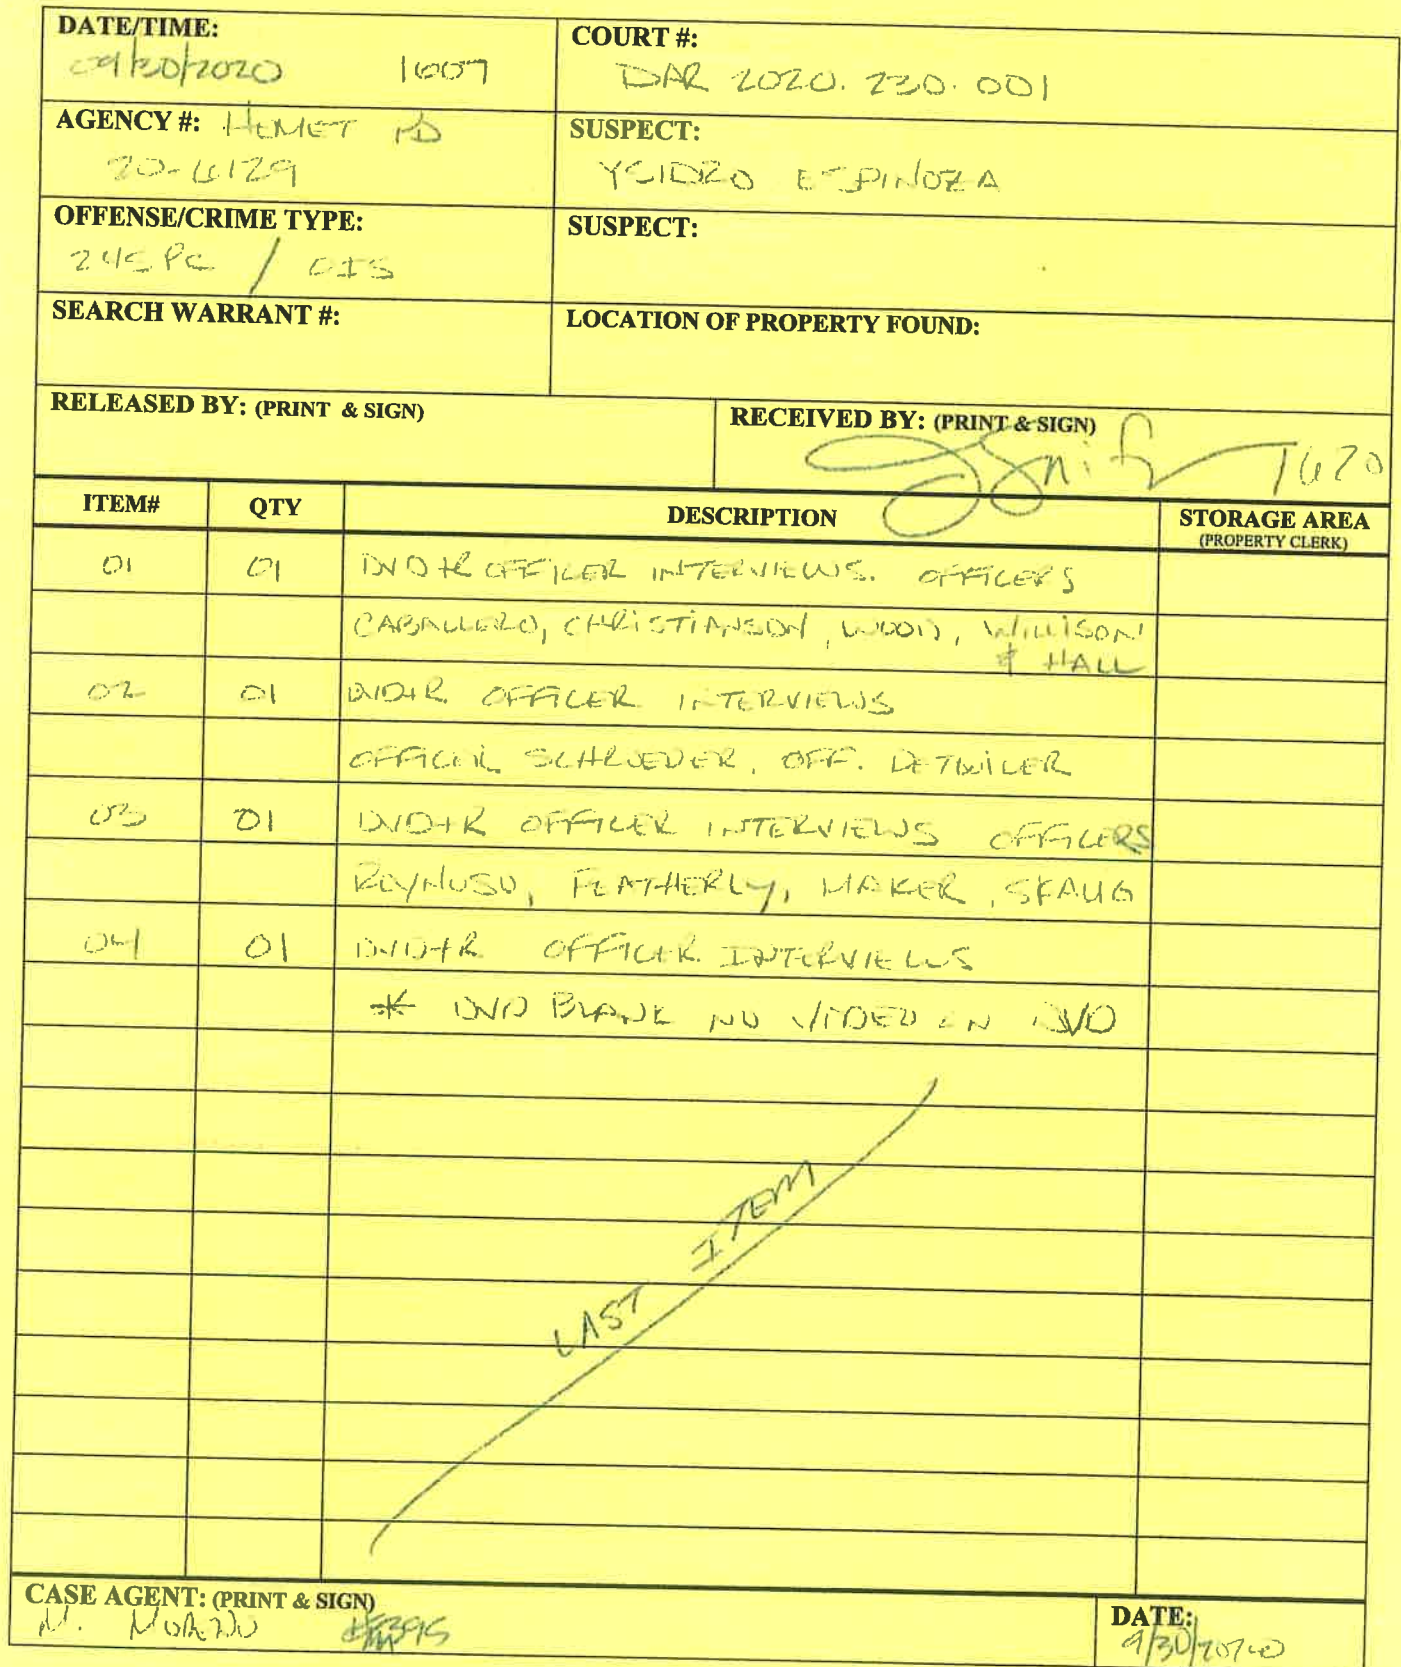 DATE/TIME:
09/30/2020 1607
COURT #:
DAR 2020.230.001
AGENCY #: HEMET PD
20-6129
SUSPECT:
YSIDRO ESPINOZA
OFFENSE/CRIME TYPE:
245 PC / OIS
SUSPECT:
SEARCH WARRANT #:
LOCATION OF PROPERTY FOUND:
RELEASED BY: (PRINT & SIGN)
RECEIVED BY: (PRINT & SIGN)
1620
ITEM# QTY DESCRIPTION STORAGE AREA
(PROPERTY CLERK)
01 01 DVD+R OFFICER INTERVIEWS. OFFICERS
CABALLERO, CHRISTIANSON, WOOD, WILLISON
& HALL
02 01 DVD+R OFFICER INTERVIEWS
OFFICER SCHROEDER, OFF. DETWILER
03 01 DVD+R OFFICER INTERVIEWS OFFICERS
REYNOSO, FEATHERLY, MAKER, SKAUG
04 01 DVD+R OFFICER INTERVIEWS
* DVD BLANK NO VIDEO ON DVD
LAST ITEM
CASE AGENT: (PRINT & SIGN)
N. MORENO
DATE:
9/30/2020